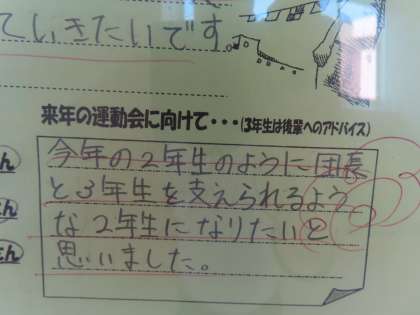 ていきたいです。
来年の運動会に向けて・・・(3年生は後輩へのアドバイス)
今年の2年生のように団長
と3年生を支えられるよう
な2年生になりたいと
思いました。
さん
さん
さん